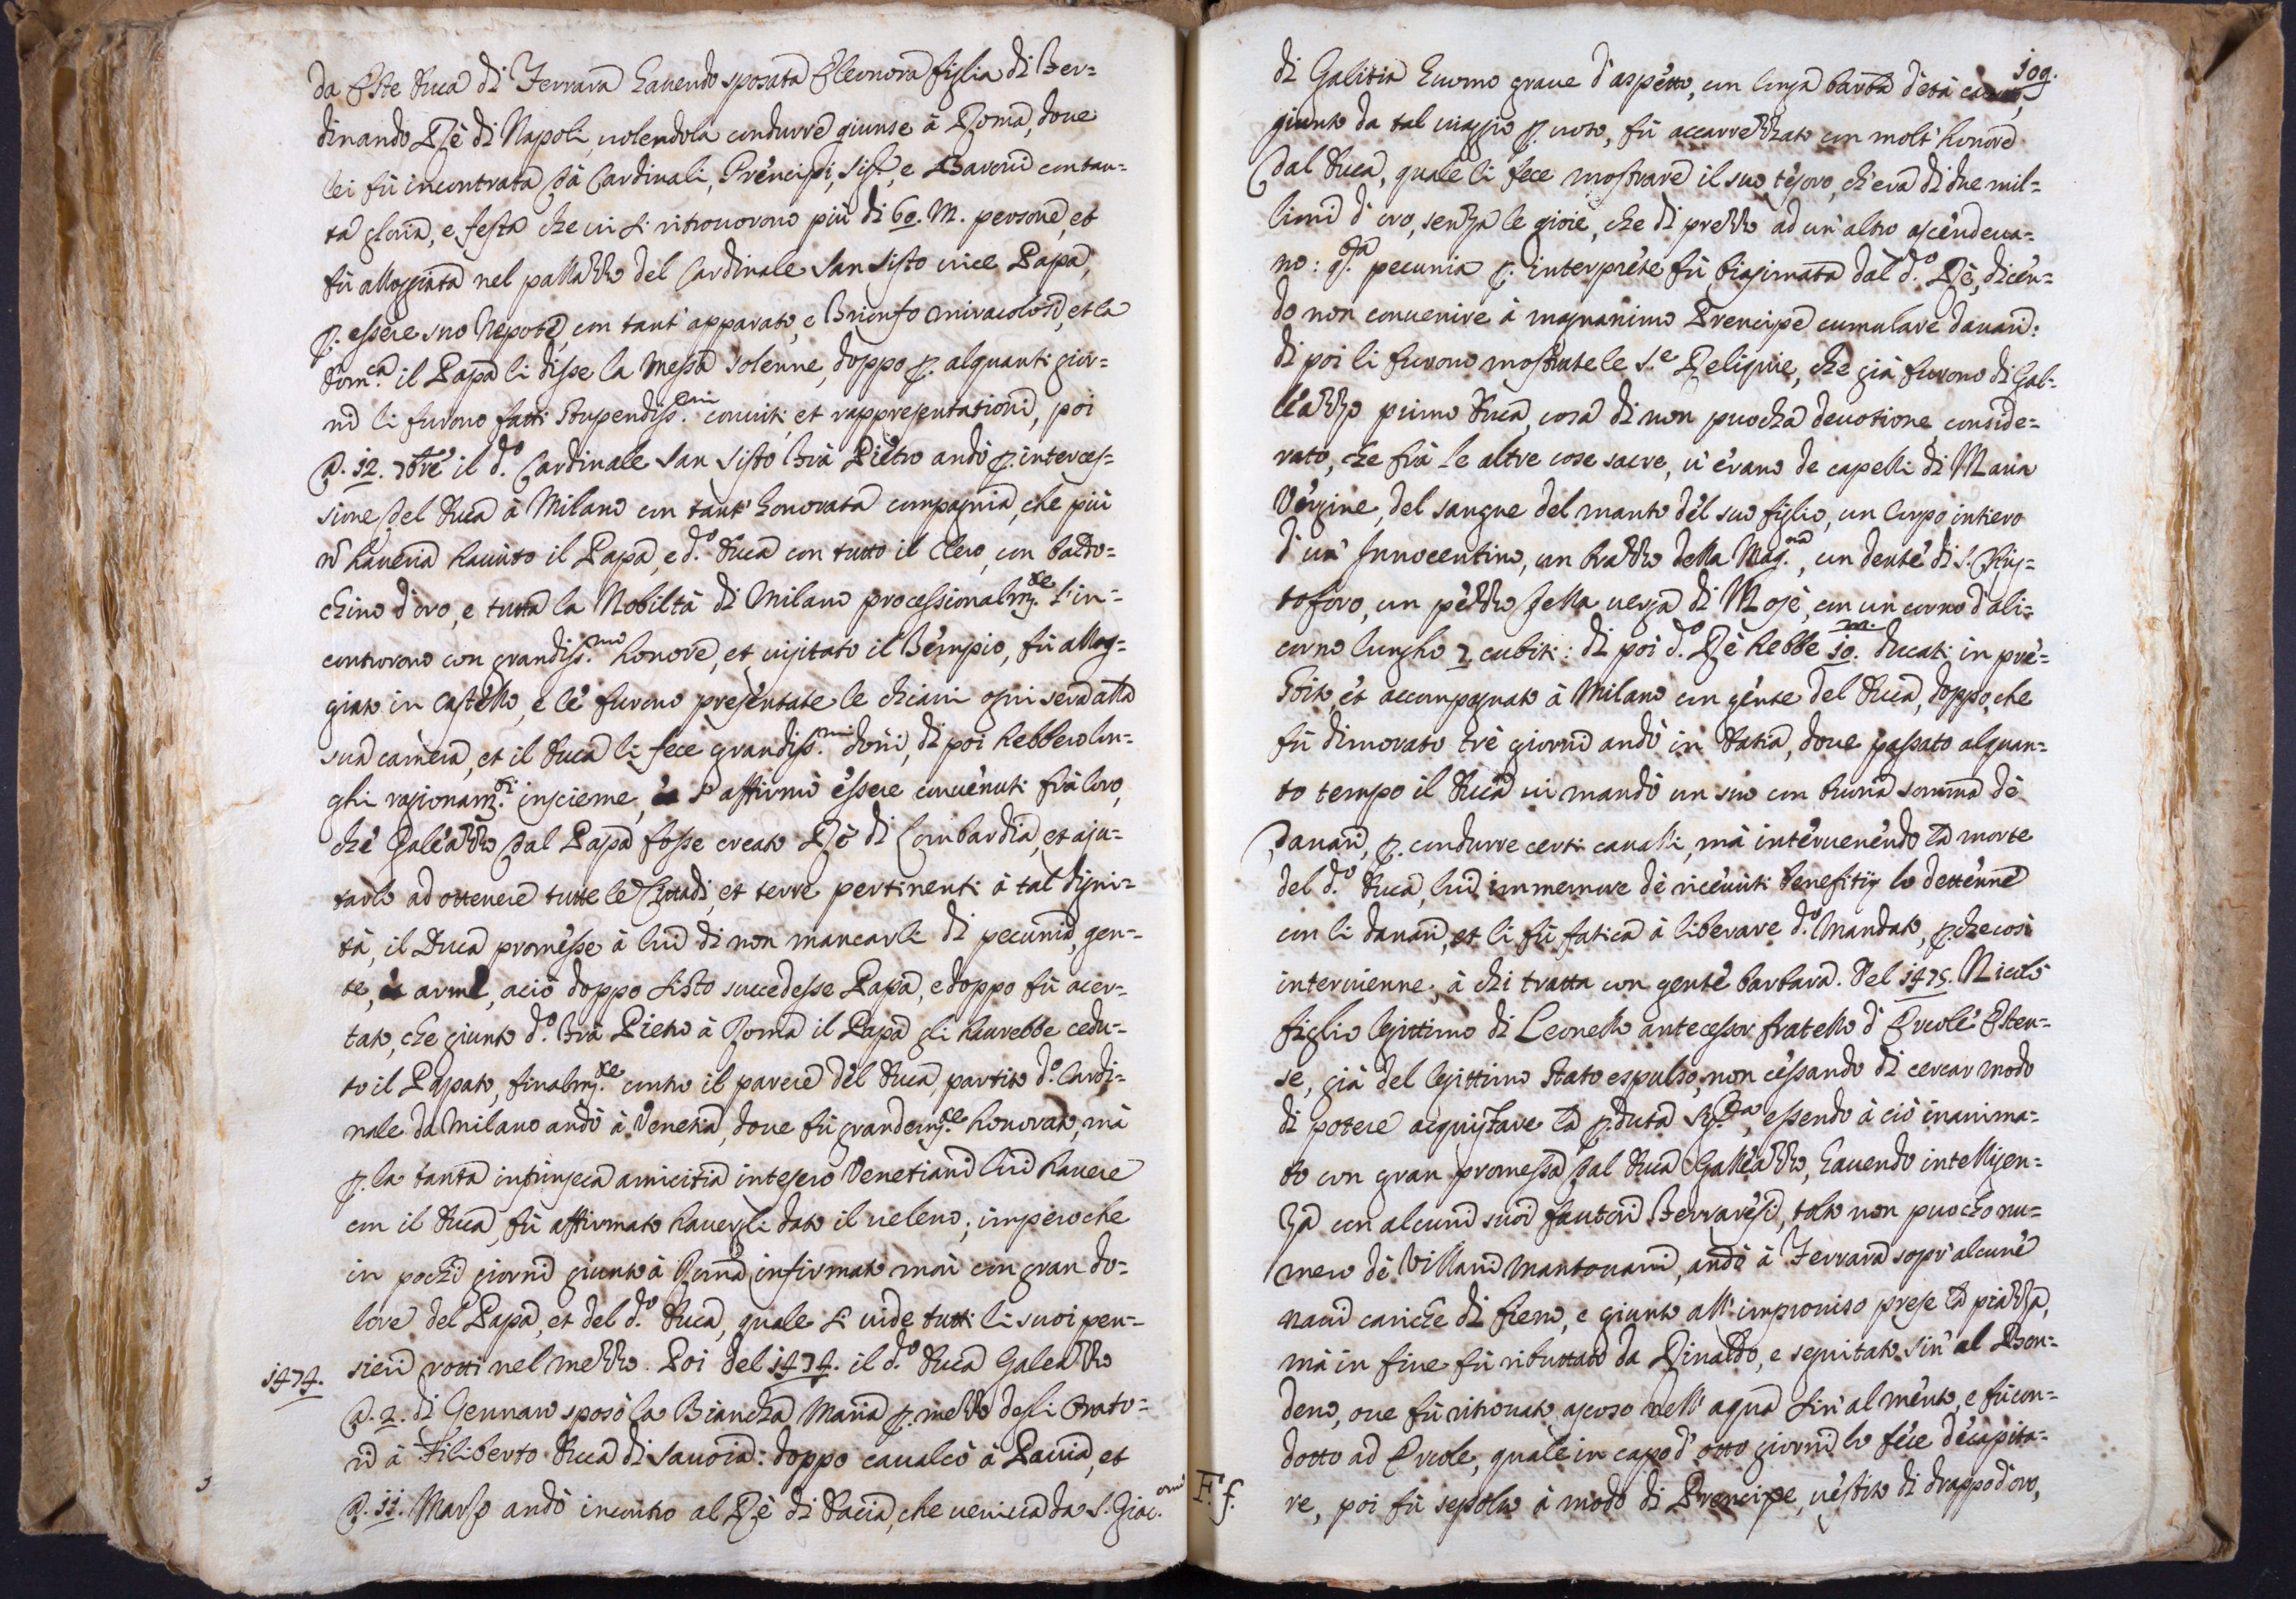 da Este Duca di Ferrara havendo sposata Eleonora figlia di Fer=
dinando Rè di Napoli, volendola condurre giunse à Roma, dove
lei fù incontrata dà Cardinali, Prencipi, Sig.ri, e Baroni con tan=
ta gloria, e festa che vi si ritrovorono più di 60. M. persone, et
fù alloggiata nel palazzo del Cardinale San Sisto vice Papa,
p. essere suo Nepote, con tant' apparato, e Trionfo miracolosi, et la
Dom.ca il Papa li disse la Messa solenne, doppo p. alquanti gior=
ni li furono fatti stupendiss.mi conviti, et rappresentationi, poi
A. 12. 7bre il d.o Cardinale San Sisto Frà Pietro andò p. interces=
sione del Duca à Milano con tant' honorata compagnia, che più
nō haveria havuto il Papa, e d.o Duca con tutto il Clero, con baldo=
chino d'oro, e tutta la Nobiltà di Milano processionalm.te l'in=
controrono con grandiss.mo honore, et visitato il Tempio, fù allog=
giato in Castello, e le furono presentate le chiavi ogni sera alla
sua camera, et il Duca li fece grandiss.mi doni, di poi hebbero lon=
ghi ragionam.ti insieme, s'affirmò essere convenuti frà loro,
che Galeazzo dal Papa fosse creato Rè di Lombardia, et aju=
tarlo ad ottenere tutte le Cittadi, et terre pertinenti à tal digni=
tà, il Duca promesse à lui di non mancarli di pecunia, gen=
te, arme, aciò doppo Sisto succedesse Papa, e doppo fù acer=
tato, che giunto d.o Frà Pietro à Roma il Papa gli haurebbe cedu=
to il Papato, finalm.te contro il parere del Duca, partito d.o Cardi=
nale da Milano andò à Venetia, dove fù grandem.te honorato, mà
p. la tanta intrinseca amicitia intesero Venetiani lui havere
con il Duca, fù affirmato havergli dato il veleno; imperoche
in pochi giorni giunto à Roma, infirmato morì con gran do=
lore del Papa, et del d.o Duca, quale si vide tutti li suoi pen=
sieri rotti nel mezzo. Poi del 1474. il d.o Duca Galeazzo
1474.
A. 2. di Gennaro sposò la Biancha Maria p. mezzo degli Orato=
ri à Filiberto Duca di Savoia: doppo cavalcò à Pavia, et
A. 11. Marzo andò incontro al Rè di Dacia, che veniva da S. Giac.omo
F. f.
109.
di Galitia huomo grave d'aspetto, con longa barba d'età
giunto da tal viaggio p. voto, fù accarrezzato con molt' honore
dal Duca, quale li fece mostrare il suo tesoro, ch'era di due mil=
lioni d'oro, senza le gioie, che di prezzo ad un' altro ascendeva=
no: q.ta pecunia p. interprete fù biasimata dal d.o Rè, dicen=
do non convenire à magnanimo Prencipe cumulare danari:
di poi li furono mostrate le S.e Reliquie, che già furono di Gal=
leazzo primo Duca, cosa di non puocha devotione, conside=
rato, che frà le altre cose sacre, v'erano de capelli di Maria
Vergine, del sangue del manto del suo figlio, un Corpo intiero
d'un' Innocentino, un brazzo della Mag.na, un dente di S. Chris=
toforo, un pezzo della verga di Mosè, con un corno d'ali=
corno lungho 7 cubiti: di poi d.o Rè hebbe 10. m. ducati in pre=
stito, et accompagnato à Milano con gente del Duca, doppo che
fù dimorato trè giorni andò in Datia, dove passato alquan=
to tempo il Duca vi mandò un suo con buona somma de
danari, p. condurre certi cavalli, mà intervenendo la morte
del d.o Duca, lui immemore de ricevuti benefitij lo dettenne
con li danari, et li fù fatica à liberare d.o Mandato, p. che così
interviene, à chi tratta con gente barbara. Del 1475. Nicolò
figlio legittimo di Leonello antecessor fratello d'Ercole Esten=
se, già del legittimo stato espulso, non cessando di cercar modo
di potere acquistare la p.duta Sig.ria, essendo à ciò inanima=
to con gran promessa dal Duca Galleazzo, havendo intelligen=
za con alcuni suoi fautori Ferraresi, tolto non puocho nu=
mero de Villani Mantovani, andò à Ferrara sopr' alcune
navi cariche di fieno, e giunto all' improviso prese la piazza,
mà in fine fù ributtato da Rinaldo, e seguitato sin' al Bon=
deno, ove fù ritrovato ascoso nell' aqua sin' al mento, e fù con=
dotto ad Ercole, quale in capo d'otto giorni lo fece decapita=
re, poi fù sepolto à modo di Prencipe, vestito di drappo d'oro,